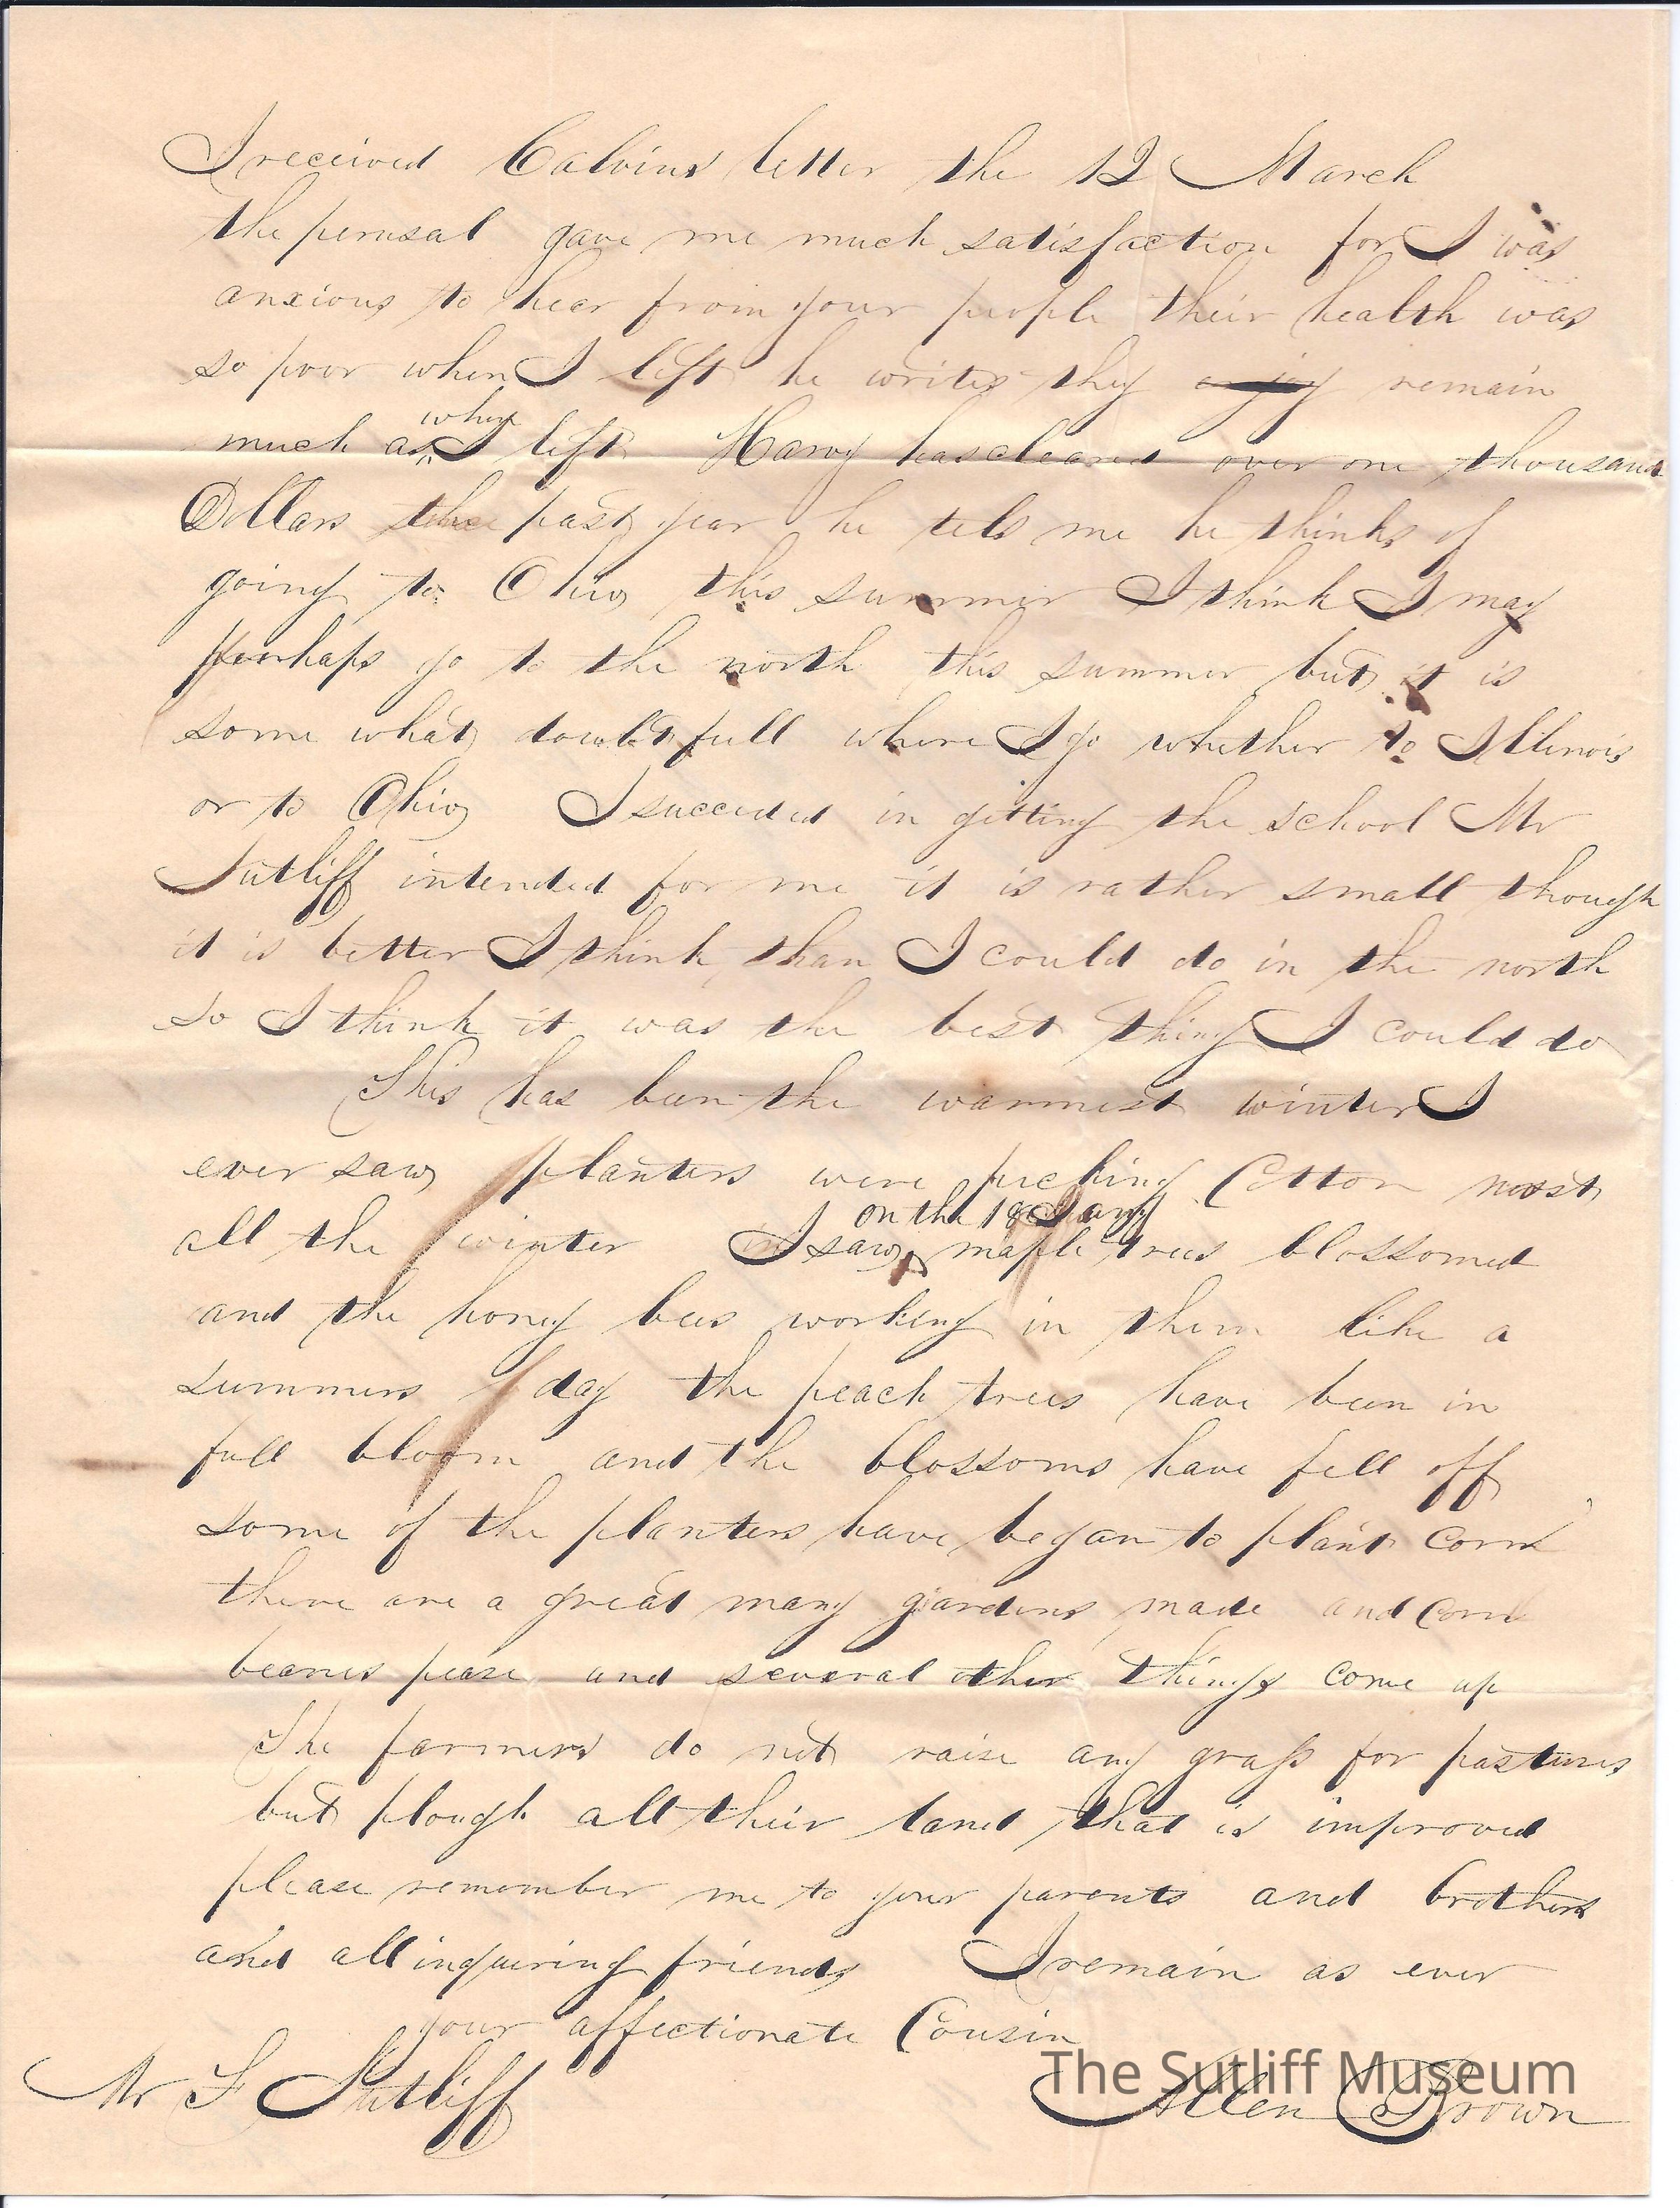 I received Calvins letter the 12 March
the perusal gave me much satisfaction for I was
anxious to hear from your people their health was
so poor when I left he writes they enjoy remain
much as when I left Harvy has cleared over one thousand
Dollars the past year he tels me he thinks of
going to Ohio this summer I think I may
perhaps go to the north this summer but it is
some what doubtfull where I go whether to Illinois
or to Ohio I succeeded in gitting the school Mr
Sutliff intended for me it is rather small though
it is better I think than I could do in the north
so I think it was the best thing I could do
This has been the warmest winter I
ever saw planters were picking Cotton most
all the winter I saw on the 18 Jany maple trees blossomed
and the honey bees working in them like a
summers day the peach trees have been in
full bloom and the blossoms have fell off
some of the planters have began to plant corn
there are a great many gardens made and corn
beanes pease and several other things come up
The farmers do not raise any grass for pastures
but plough all their land that is improved
please remember me to your parents and brothers
and all inquiring friends I remain as ever
your affectionate Cousin
The Sutliff Museum
Mr F Sutliff Allen Brown